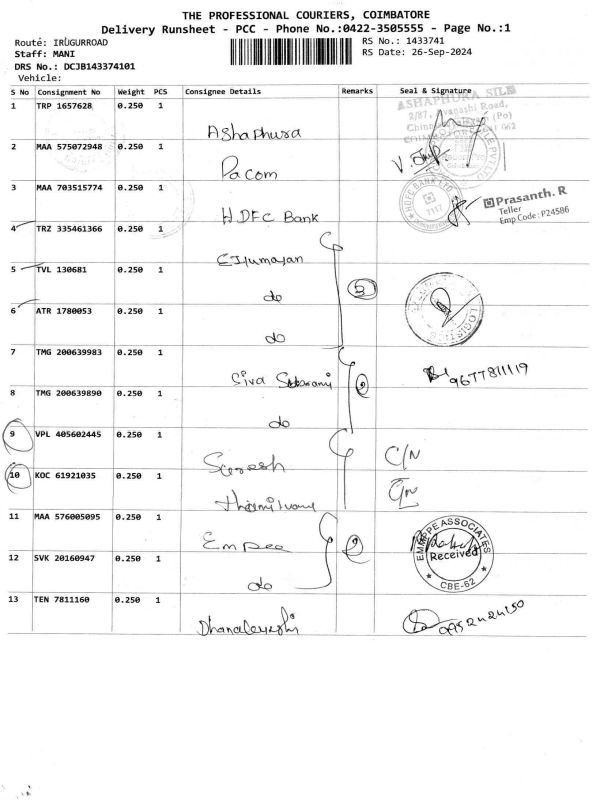 THE PROFESSIONAL COURIERS, COIMBATORE
Delivery Runsheet - PCC - Phone No.:0422-3505555 - Page No.:1
Route: IRUGURROAD
RS No.: 1433741
Staff: MANI
RS Date: 26-Sep-2024
DRS No.: DCJB143374101
Vehicle:
S No Consignment No Weight PCS Consignee Details Remarks Seal & Signature
1 TRP 1657628 0.250 1
Ashaphura
ASHAPHURA SILK
2/87, Avanashi Road,
2 MAA 575072948 0.250 1
Pacom
3 MAA 703515774 0.250 1
HDFC Bank
HDFC BANK LTD
Prasanth. R
Teller
Emp Code: P24586
4 TRZ 335461366 0.250 1
5 TVL 130681 0.250 1
do
3
6 ATR 1780053 0.250 1
do
7 TMG 200639983 0.250 1
Siva
9677811119
8 TMG 200639890 0.250 1
do
2
9 VPL 405602445 0.250 1
Suresh
C/N
10 KOC 61921035 0.250 1
C/N
11 MAA 576005095 0.250 1
Empee
2
EMMPPE ASSOCIATES
Received
CBE-62
12 SVK 20160947 0.250 1
do
13 TEN 7811160 0.250 1